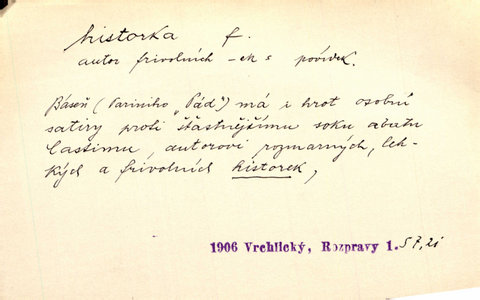 historka f.
autor frivolních -ek a povídek.
Báseň (Pariniho „Pád") má i hrot osobní
satiry proti šťastnějšímu soku abatu
Castimu, autorovi rozmarných, leh-
kých a frivolních historek,
1906 Vrchlický, Rozpravy 1. 57, 21